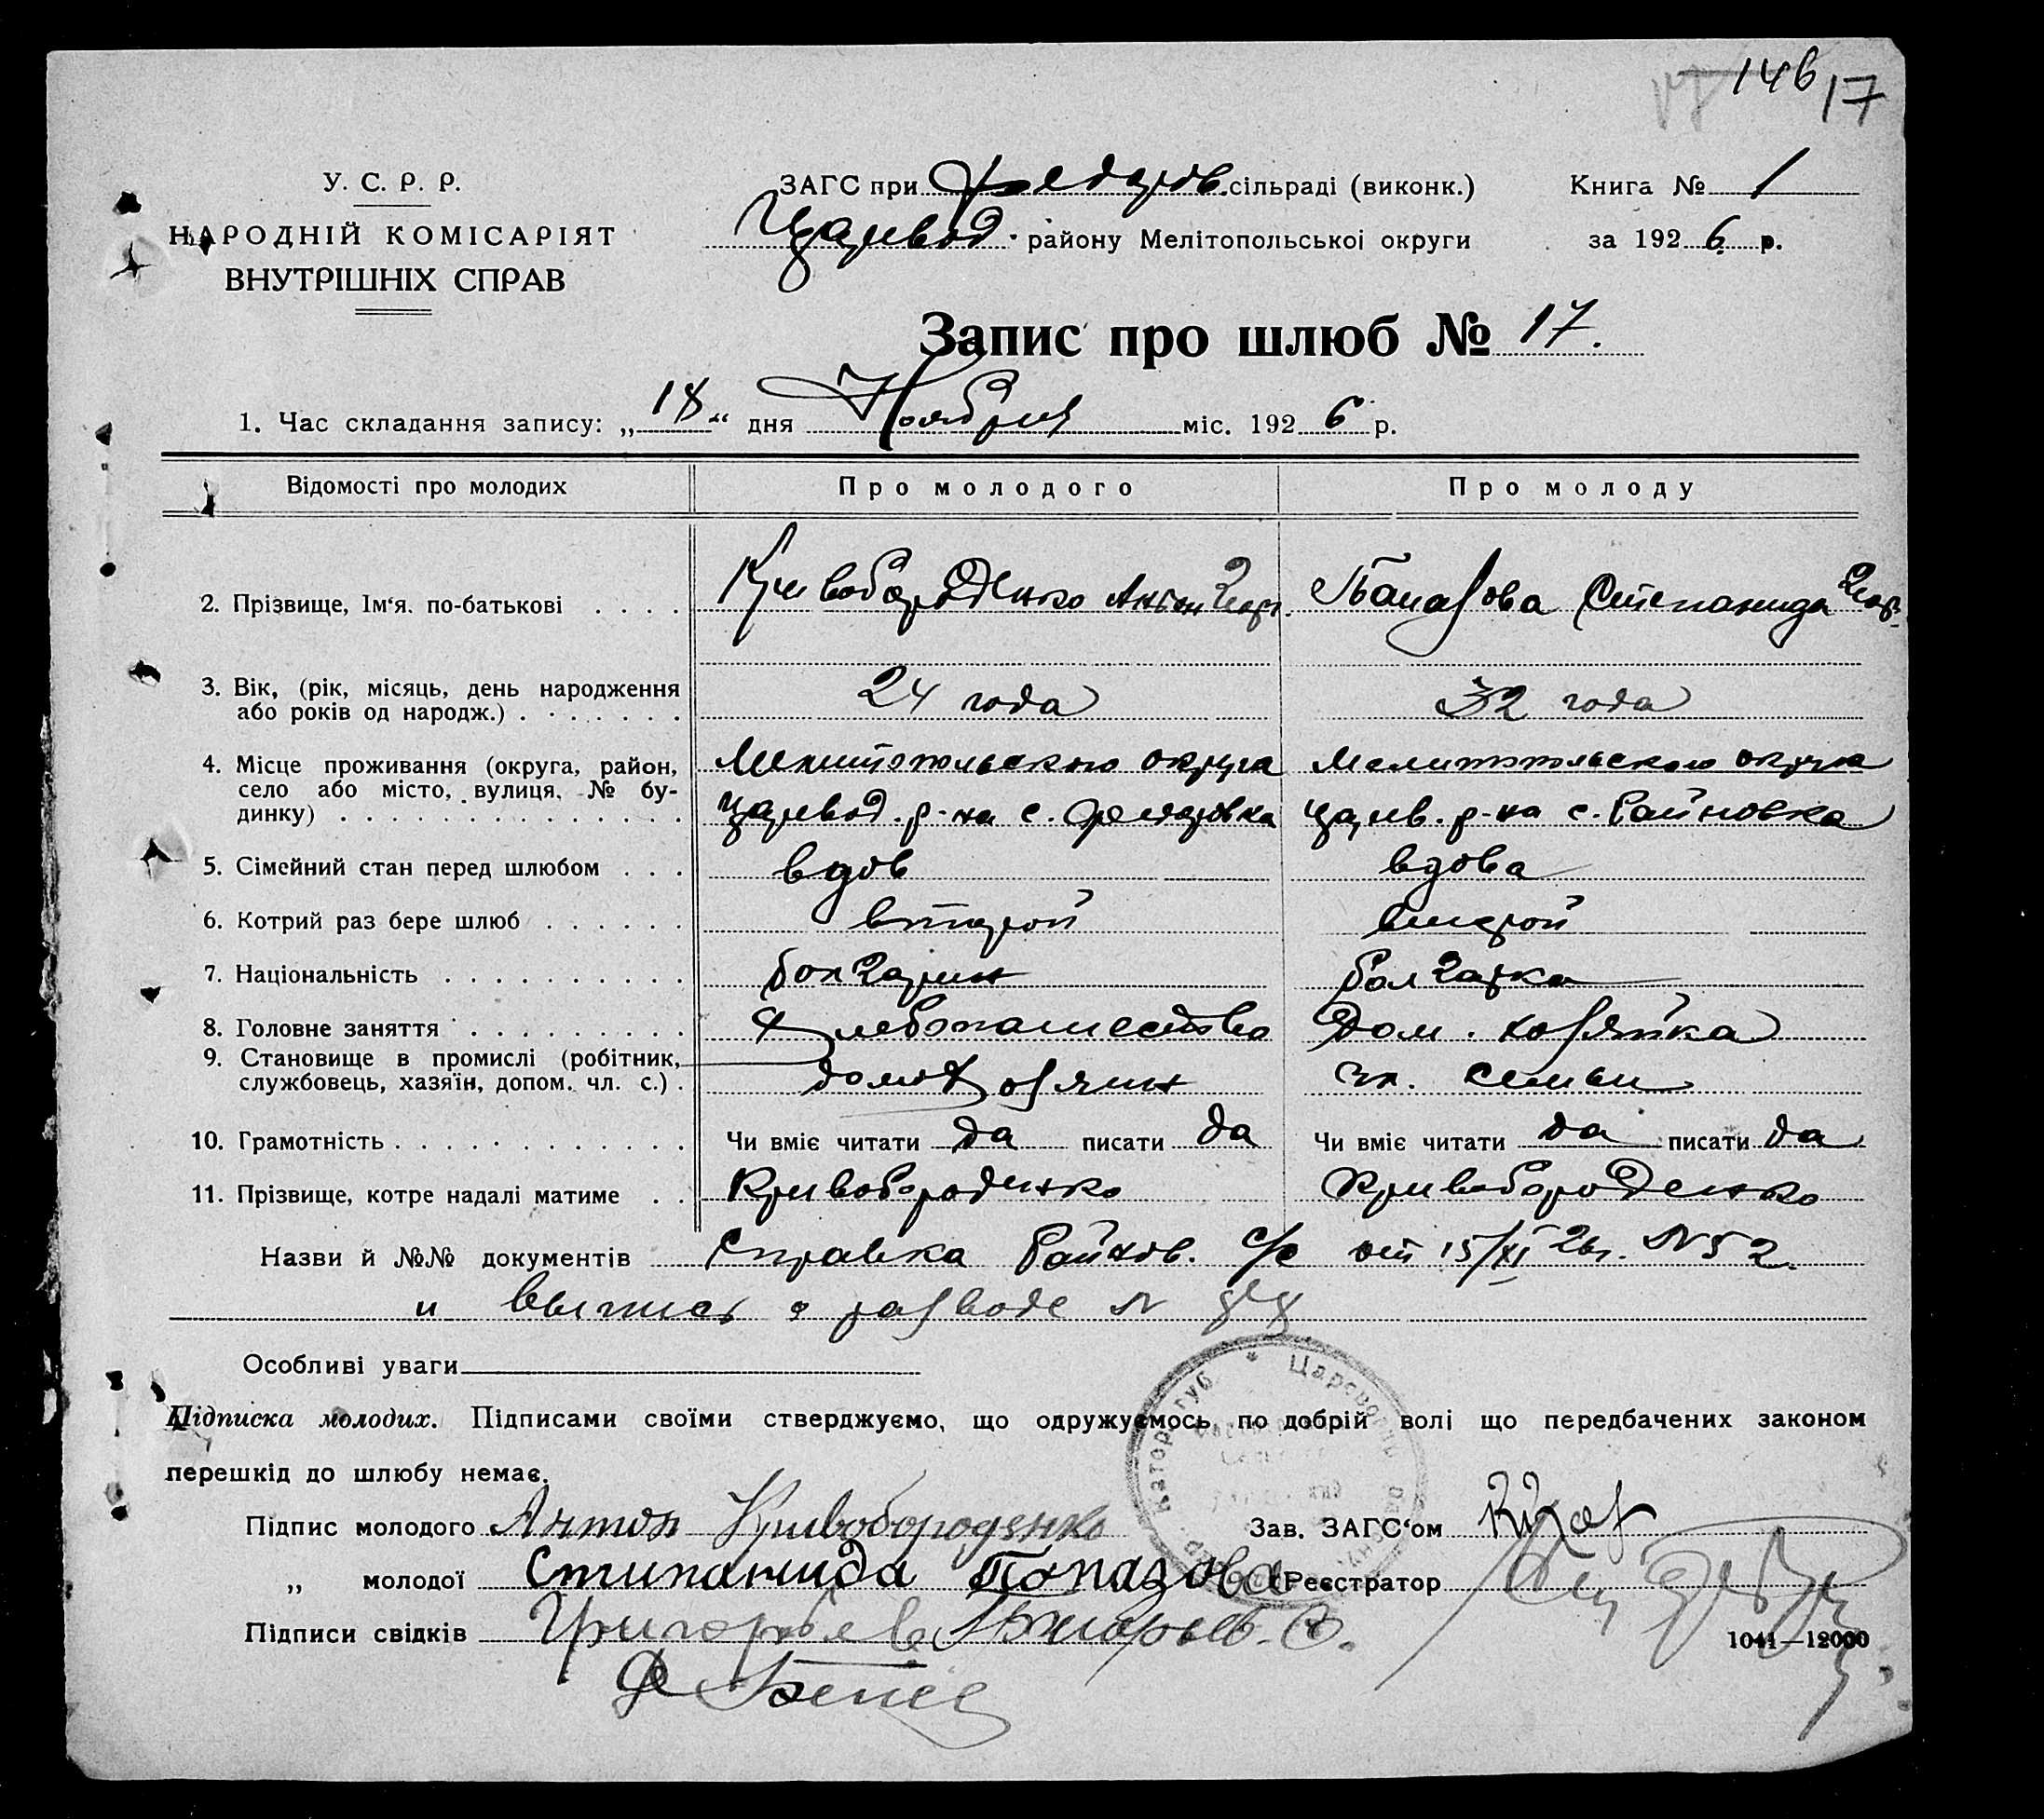 146 17
У. С. Р. Р.
НАРОДНІЙ КОМІСАРІЯТ
ВНУТРІШНІХ СПРАВ
ЗАГС при Федоров. сільраді (виконк.) Книга № 1
Царевод. району Мелітопольської округи за 1926 р.
Запис про шлюб № 17.
1. Час складання запису: „18“ дня Ноября міс. 1926 р.
Відомості про молодих Про молодого Про молоду
2. Прізвище, Ім‘я. по-батькові . . . . Кривобороденко Антон Геор. Папазова Степанида Геор.
3. Вік, (рік, місяць, день народження
або років од народж.) . . . . . . . 24 года 32 года
4. Місце проживання (округа, район, Мелитопольского округа Мелитопольского округа
село або місто, вулиця, № бу-
динку) . . . . . . . . . . . . . . Царевод. р-на с. Федоровка Царев. р-на с. Райновка
5. Сімейний стан перед шлюбом . . . вдов вдова
6. Котрий раз бере шлюб . . . . . . второй второй
7. Національність . . . . . . . . . . болгарин болгарка
8. Головне заняття . . . . . . . . . Хлебопашество Дом. хозяйка
9. Становище в промислі (робітник,
службовець, хазяїн, допом. чл. с.) . домохозяин чл. семьи
10. Грамотність . . . . . . . . . . . . . Чи вміє читати да писати да Чи вміє читати да писати да
11. Прізвище, котре надалі матиме . . Кривобороденко Кривобороденко
Назви й №№ документів Справка Райнов. с/с от 15/XI 26г. N 52.
и выпись о разводе N
Особливі уваги
Підписка молодих. Підписами своїми стверджуємо, що одружуємось по добрій волі що передбачених законом
перешкід до шлюбу немає.
Підпис молодого Антон Кривобороденко Зав. ЗАГС‘ом
„ молодої Стипанида Попазова Реєстратор
Підписи свідків Григорьев
1041—12000